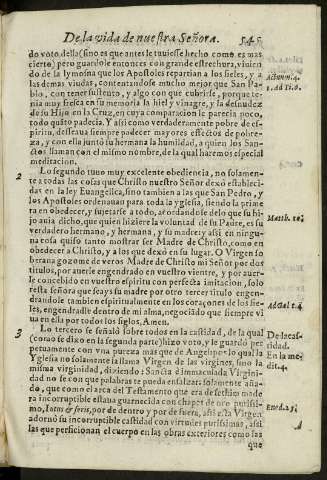 De la vida de nuestra Señora. 545
do voto della (sino es que antes le tuuiesse hecho como es mas
cierto) pero guardole entonces con grande estrechura, viuien
do de la lymosna que los Apostoles repartian a los fieles, y a
las demas viudas, contentandose mucho mejor que San Pa-
blo, con tener sustento, y algo con que cubrirse, porque te-
nia muy fresca en su memoria la hiel y vinagre, y la desnudez
de su Hijo en la Cruz, en cuya comparacion le parecia poco,
todo quāto padecia. Y assi como verdaderamente pobre de es-
piritu, desseaua siempre padecer mayores efectos de pobre-
za, y con ella juntò su hermana la humildad, a quien los San-
ctos llaman con el mismo nombre, de la qual haremos especial
meditacion.
2 Lo segundo tuuo muy excelente obediencia, no solamen-
te a todas las cosas que Christo nuestro Señor dexò estableci-
das en la ley Euangelica, sino tambien a las que San Pedro, y
los Apostoles ordenauan para toda la yglesia, siendo la prime
ra en obedecer, y sujetarse a todo, acordandose delo que su hi-
jo auia dicho, que quien hiziere la voluntad de su Padre, es su
verdadero hermano, y hermana, y su madre: y assi en ningu-
na cosa quiso tanto mostrar ser Madre de Christo, como en
obedecer a Christo, y a los que dexò en su lugar. O Virgen so
berana gozome de veros Madre de Christo mi Señor por dos
titulos, por auerle engendrado en vuestro vientre, y por auer-
le concebido en vuestro espiritu con perfecta imitacion, solo
resta señora que seays su madre por otro tercer titulo engen-
drandole tambien espiritualmente en los coraçones de los fie-
les, engendradle dentro de mi alma, negociado que siempre vi
ua en ella por todos los siglos, Amen.
3 Lo tercero se señalò sobre todos en la castidad, de la qual
(como se dixo en la segunda parte) hizo voto, y le guardò per
petuamente con vna pureza mas que de Angeles: por lo qual la
Yglesia no solamente la llama Virgen de las virgines, sino la
misma virginidad, diziendo: Sancta è immaculada Virgini-
dad no se con que palabras te pueda ensalzar: solamente aña-
do, que como el arca del Testamento que era de sechim made
ra incorruptible estaua guarnecida con chapas de oro purissi-
mo, Intus & foris, por de dentro y por de fuera, assi esta Virgen
adornò su incorruptible castidad con virtudes purissimas, assi
las que perficionan el cuerpo en las obras exteriores como las
que
Actuum. 4.
1. Ad Ti. 6.
Matth. 12.
Ad Gal. 4.
De la cas-
tidad.
En la me-
dit. 4.
Exod. 25.